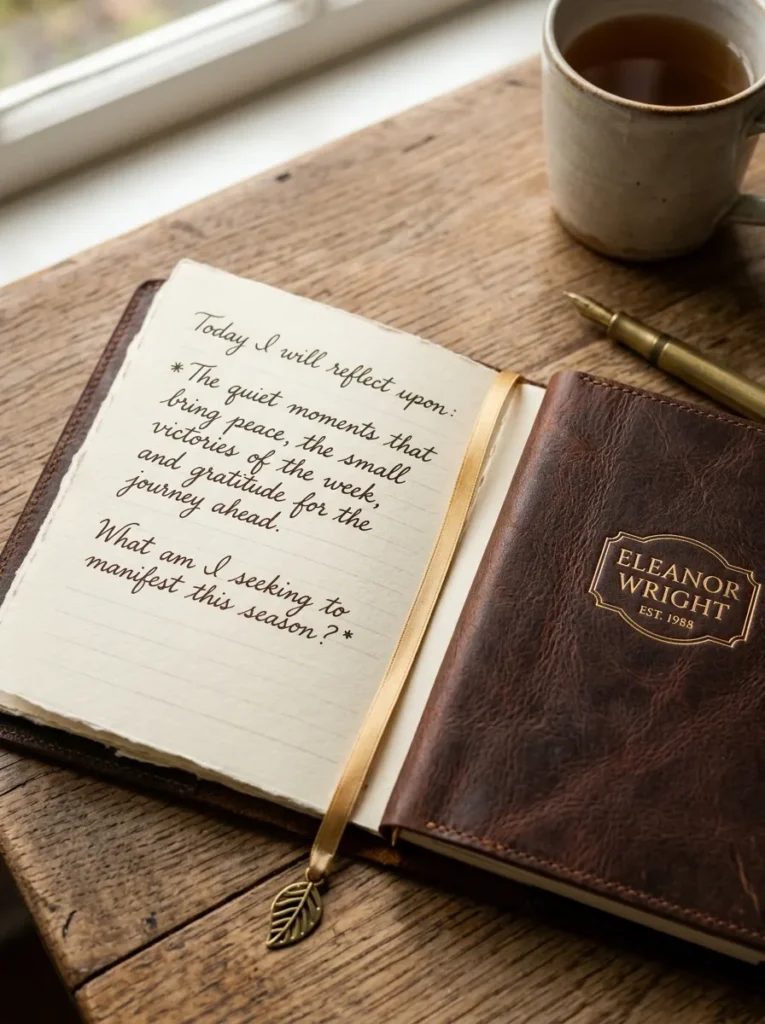 Today I will reflect upon:
*The quiet moments that
bring peace, the small
victories of the week,
and gratitude for the
journey ahead.
What am I seeking to
manifest this season?*
ELEANOR
WRIGHT
EST. 1988